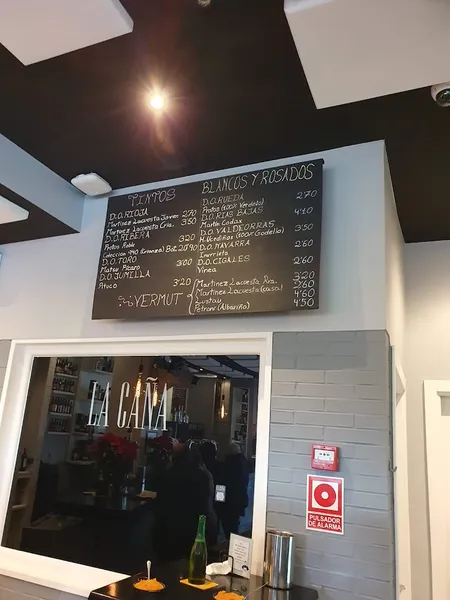 TINTOS
D.O.RIOJA
Martinez Lacuesta Joven 2'70
Martinez Lacuesta Cria. 3'50
D.O.RIBERA
Protos Roble 3'20
Coleccion 1940 (Crianza) Bot. 20'90
D.O.TORO
Matsu Picaro 3'00
D.O.JUMILLA
Atoco 3'20
BLANCOS Y ROSADOS
D.O.RUEDA 2'70
Protos (100% Verdejo)
D.O.RIAS BAJAS 4'10
Martin Codax
D.O.VALDEORRAS 3'50
(100% Godello)
D.O.NAVARRA 2'60
Inurrieta
D.O.CIGALES 2'60
Vinea
VERMUT
Martinez Lacuesta Rva. 3'20
Martinez Lacuesta (casa) 2'60
Lustau 4'60
Petroni (Albariño) 4'50
LA CAÑA
PULSADOR
DE ALARMA